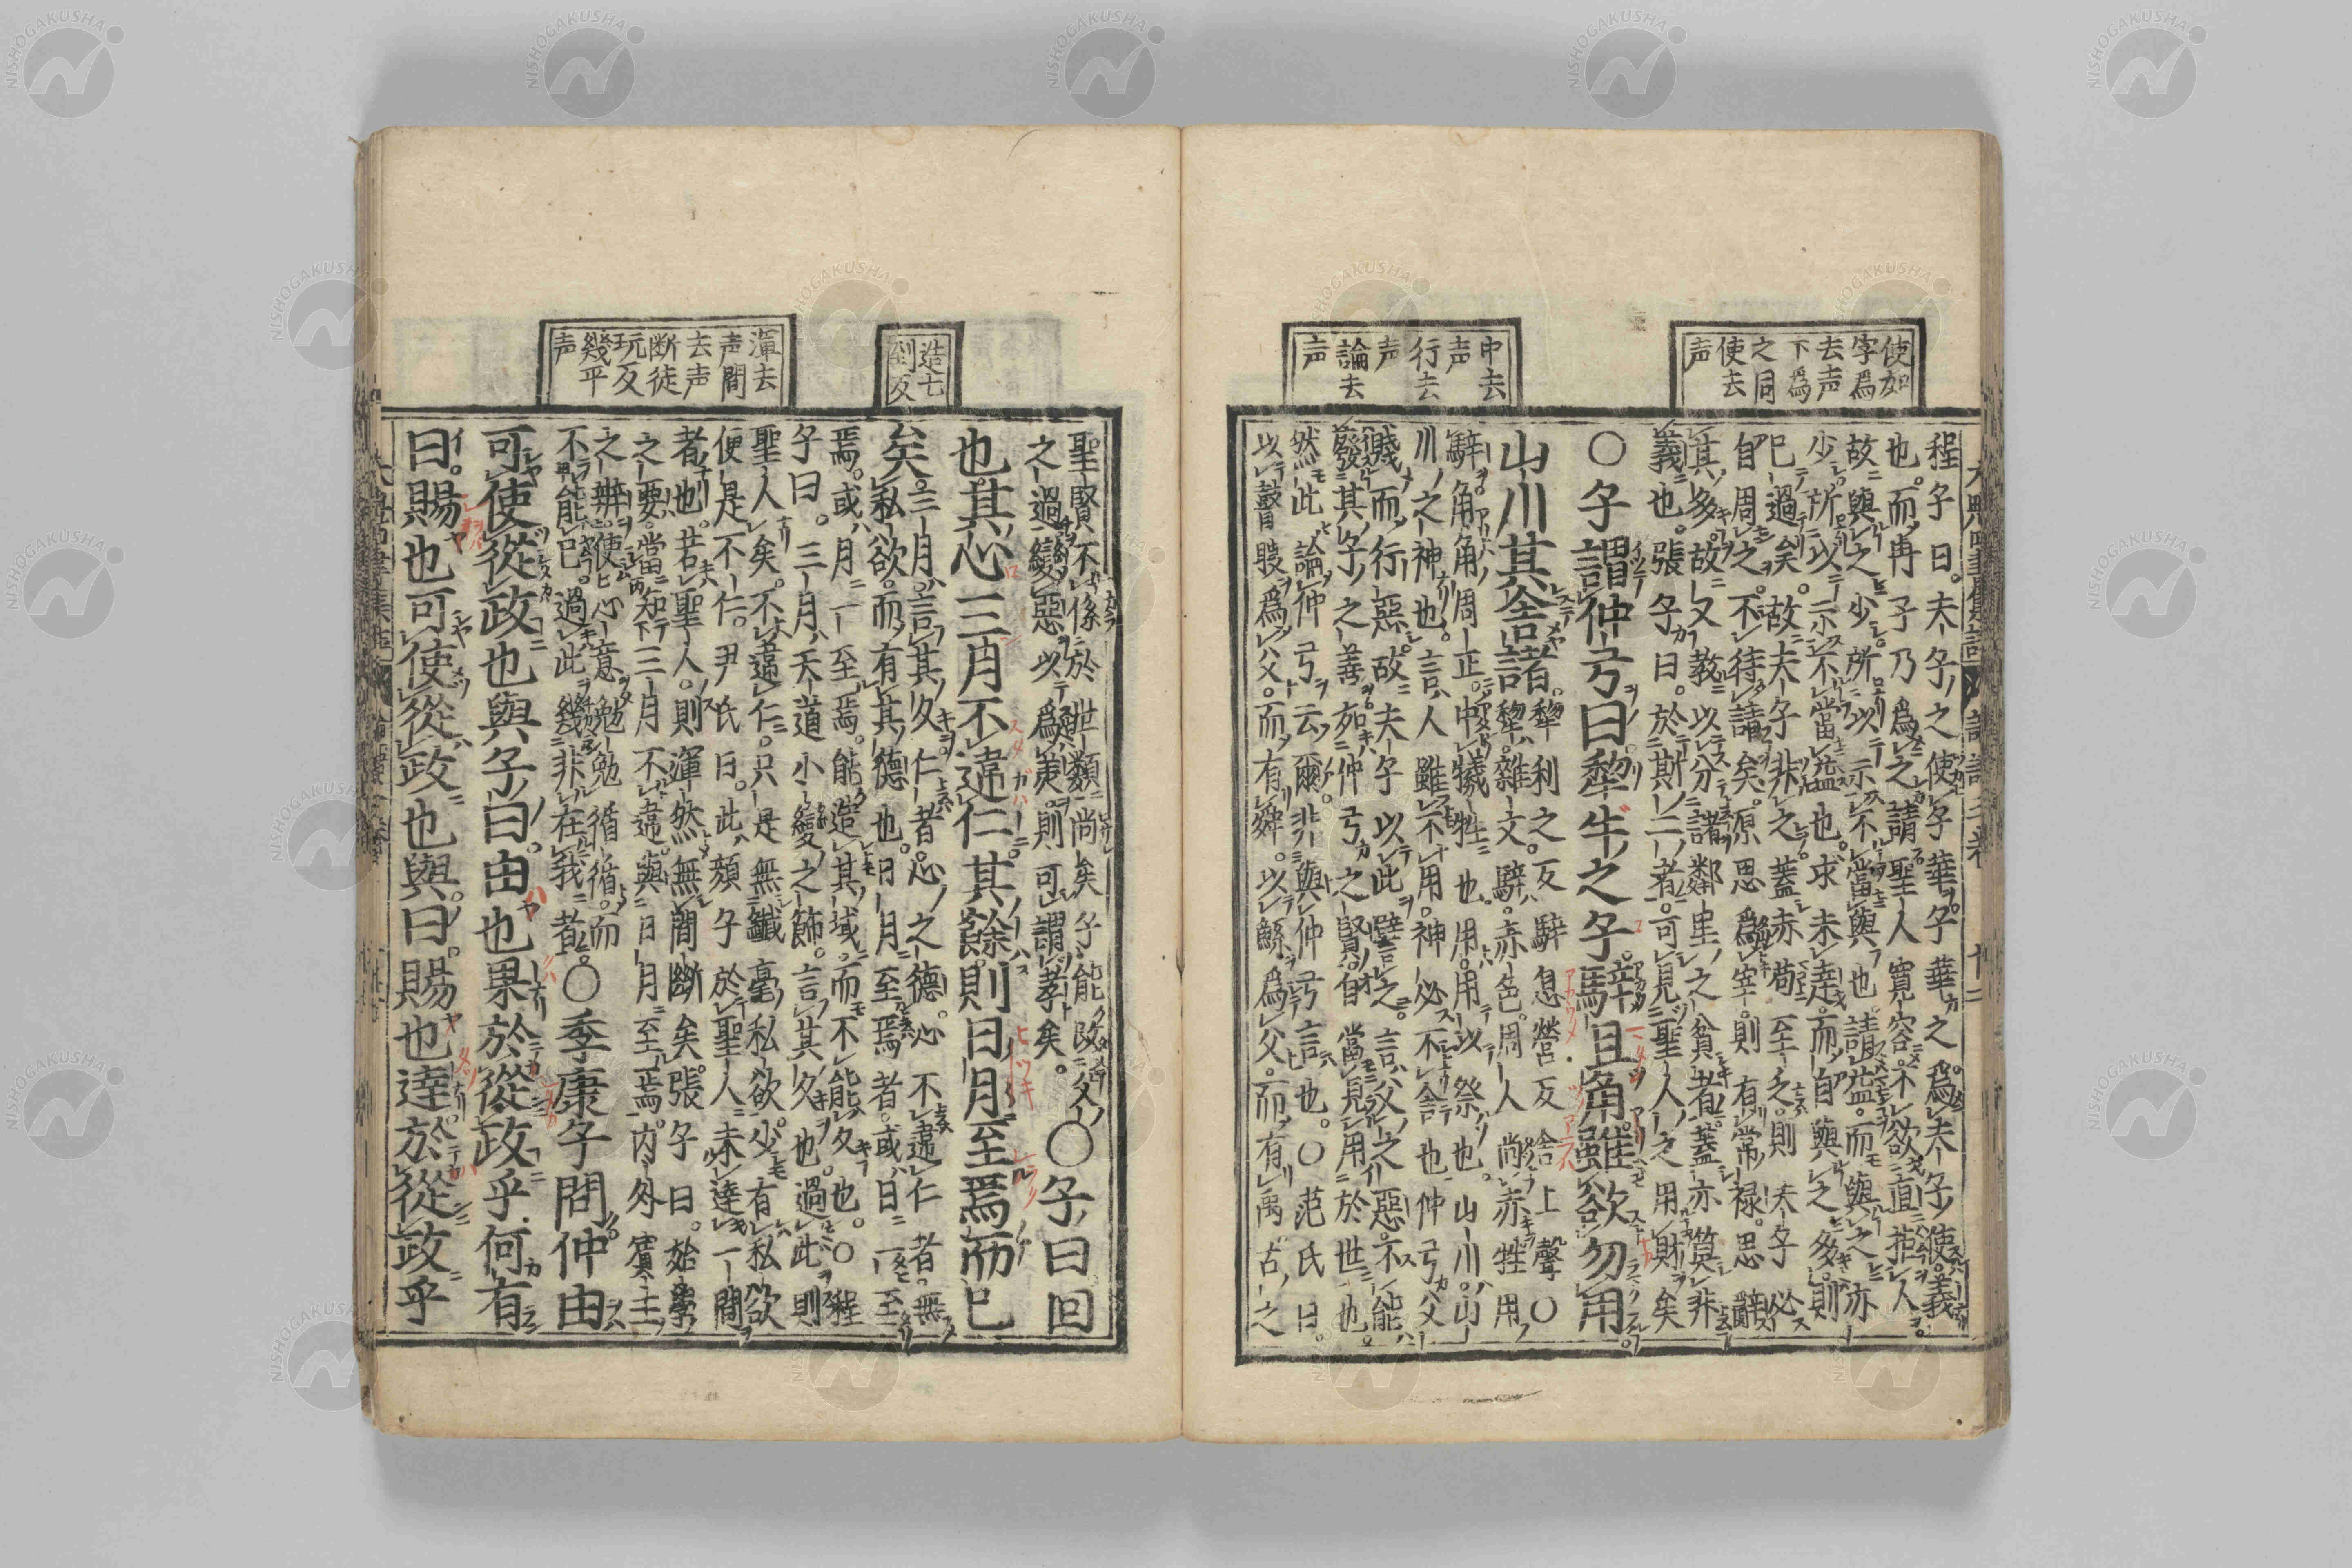 使如
字爲
去声
下爲
之同
使去
声
中去
声
行去
声
論去
声
程子曰。夫子之使子華子華之爲夫子使義
也。而冉子乃爲之請聖人寛容。不欲直拒人
故與之少。所以示不當與也。請益。而與之亦
少。所以示不當益也。求未達。而自與之多。則
已過矣。故夫子非之。蓋赤苟至乏。則夫子必
自周之。不待請矣。原思爲宰。則有常禄。思辭
其多。故又教以分諸鄰里之貧者。蓋亦莫非
義也。張子曰。於斯二者。可見聖人之用財矣
○子謂仲弓曰犂牛之子。騂且角雖欲勿用
山川其舍諸。犂利之反。騂息營反舍上聲○
犂。雜文。騂。赤色。周人尚赤牲用
騂。角。角周正。中犧牲也。用。用以祭也。山川。山
川之神也。言人雖不用。神必不舍也仲弓父
賤而行惡。故夫子以此譬之。言父之惡。不能
發其子之善如仲弓之賢。自當見用於世也。
然此論仲弓云爾。非與仲弓言也。○范氏曰。
以瞽瞍爲父。而有舜。以鯀爲父。而有禹。古之
造七
到反
渾去
声間
去声
断徒
玩反
幾平
声
聖賢不係於世類尚矣子能改父
之過變惡以爲美。則可謂孝矣。○子曰回
也其心三月不違仁其餘則日月至焉而已
矣。三月。言其久。仁者。心之德。心不違仁者。無
私欲。而有其德也。日月至焉者。或日一至
焉。或月一至焉。能造其域。而不能久也。○程
子曰。三月天道小變之節。言其久也。過此則
聖人矣。不違仁。只是無纖毫私欲。少有私欲
便是不仁。尹氏曰。此顔子於聖人未達一間
者也。若聖人。則渾然無間斷矣。張子曰。始學
之要。當知三月不違與日月至焉。内外賓主
之辨。使心意勉勉循循。而
不能已。過此幾非在我者○季康子問仲由
可使從政也與子曰。由也果於從政乎何有
曰。賜也可使從政也與曰。賜也達於從政乎